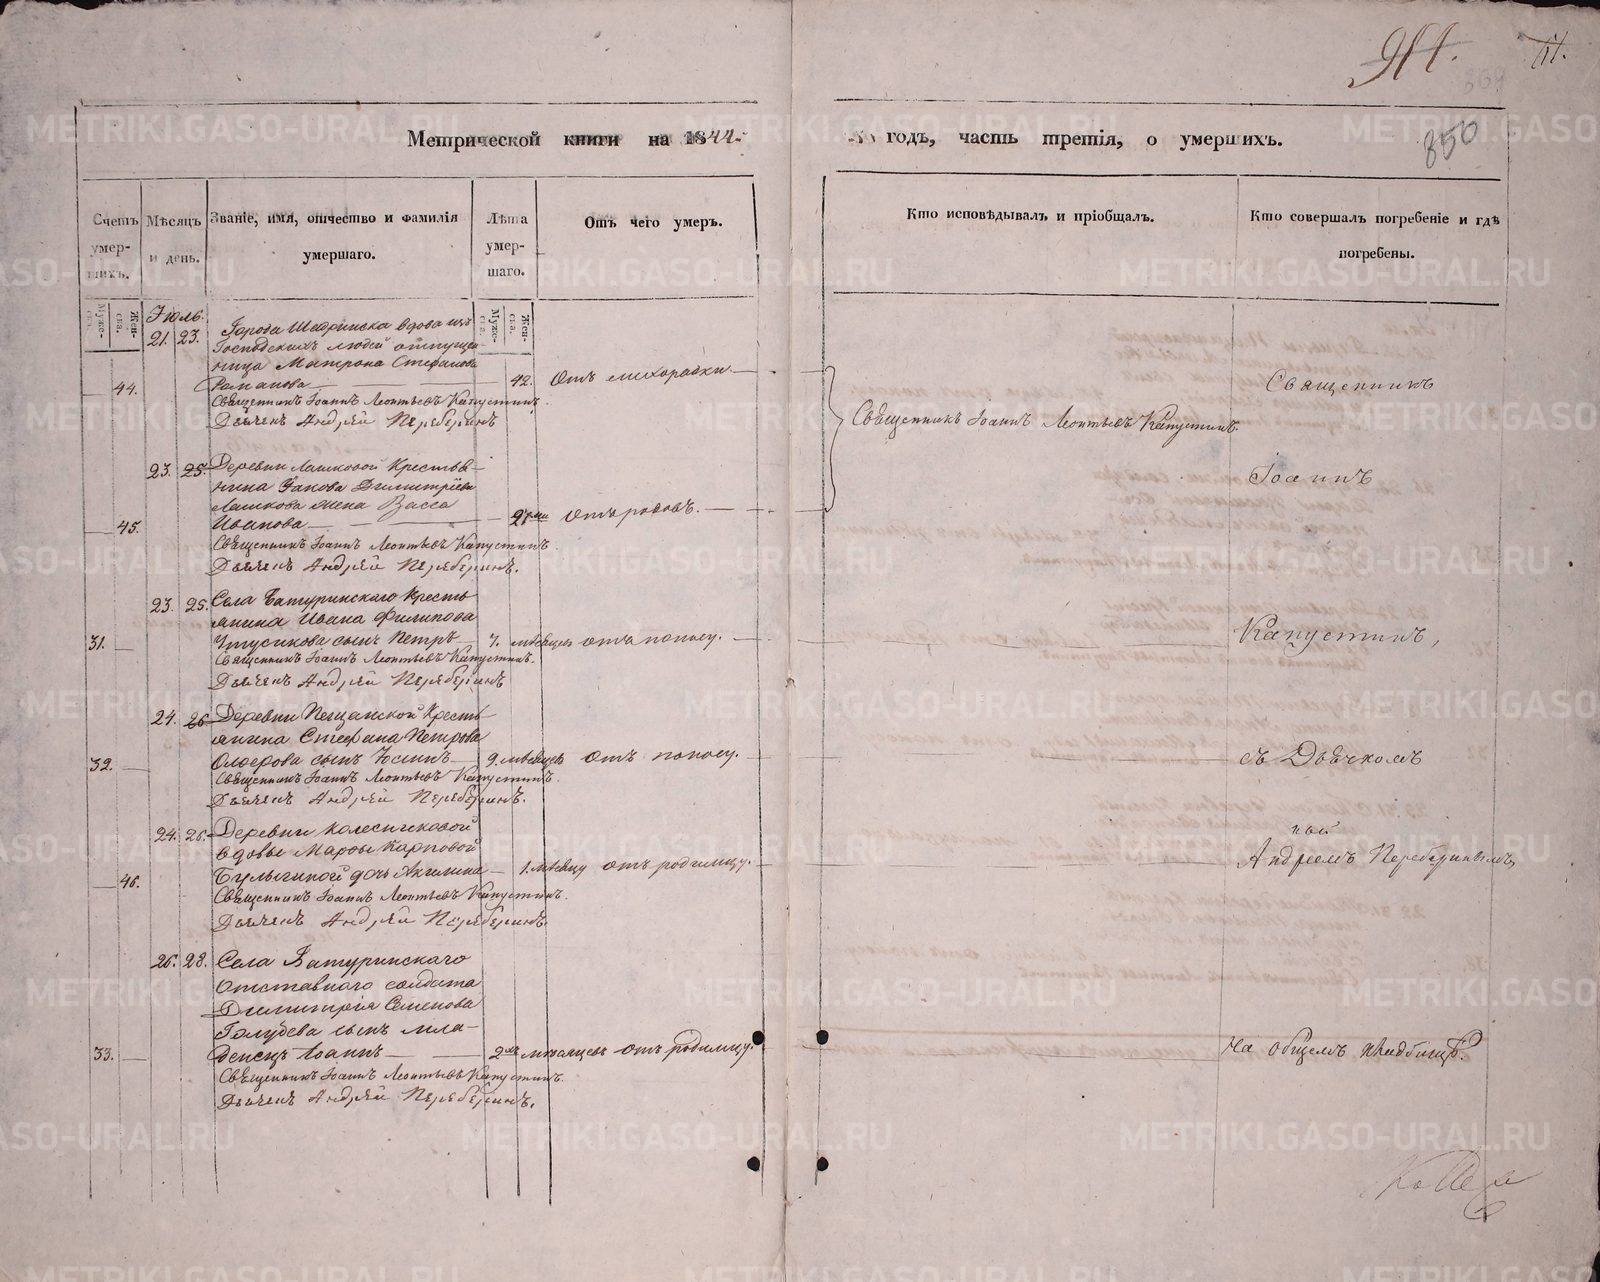 850
Метрической книги на 1844. годъ, часть третія, о умершихъ.
Счетъ умер-шихъ.
Мѣсяцъ и день.
Званіе, имя, отчество и фамилія умершаго.
Лѣта умер-шаго.
Отъ чего умеръ.
Кто исповѣдывалъ и пріобщалъ.
Кто совершалъ погребеніе и гдѣ погребены.
Муже-ска.
Жен-ска.
Муже-ска.
Жен-ска.
Іюль.
21. 23. Города Шадринска вдова изъ
Господскихъ людей отпущен-
ница Матрона Стефанова
44. Романова 42. Отъ лихорадки
Священникъ Іоаннъ Леонтьевъ Капустинъ.
Дьячекъ Андрей Переберинъ
23. 25. Деревни Лашковой Крестья-
нина Іакова Димитріева
Лашкова жена Васса
45. Иванова Отъ родовъ.
Священникъ Іоаннъ Леонтьевъ Капустинъ.
Дьячекъ Андрей Переберинъ.
23. 25. Села Батуринскаго Кресть-
янина Ивана Филипова
31. сынъ Петръ 7. мѣсяцевъ отъ поносу.
Священникъ Іоаннъ Леонтьевъ Капустинъ.
Дьячекъ Андрей Переберинъ
24. 26. Деревни Пещанской Кресть-
янина Стефана Петрова
32. сынъ 9. мѣсяцевъ Отъ поносу.
Священникъ Іоаннъ Леонтьевъ Капустинъ.
Дьячекъ Андрей Переберинъ.
24. 26. Деревни Колесниковой
вдовы Марфы Карповой
46. Булыгиной дочь Акилина 1. мѣсяцу отъ родимцу.
Священникъ Іоаннъ Леонтьевъ Капустинъ.
Дьячекъ Андрей Переберинъ.
26. 28. Села Батуринскаго
отставнаго солдата
Димитрія Семенова
Голубева сынъ мла-
33. денецъ Іоаннъ 2хъ мѣсяцевъ отъ родимцу.
Священникъ Іоаннъ Леонтьевъ Капустинъ.
Дьячекъ Андрей Переберинъ.
Священникъ Іоаннъ Леонтьевъ Капустинъ.
Священникъ
Іоаннъ
Капустинъ,
съ Дьячкомъ
Андреемъ Переберинымъ,
На общемъ кладбищѣ.
METRIKI.GASO-URAL.RU